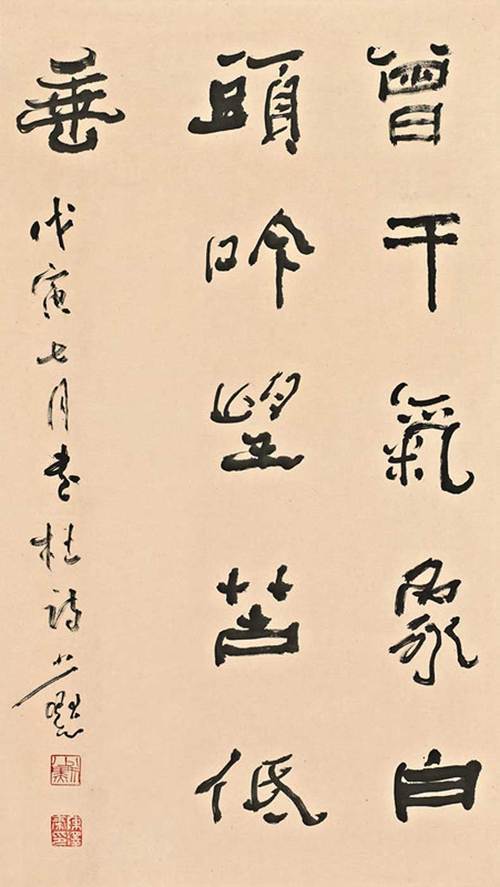 曾干气象白
頭吟望苦低
垂
戊寅七月書杜詩少默